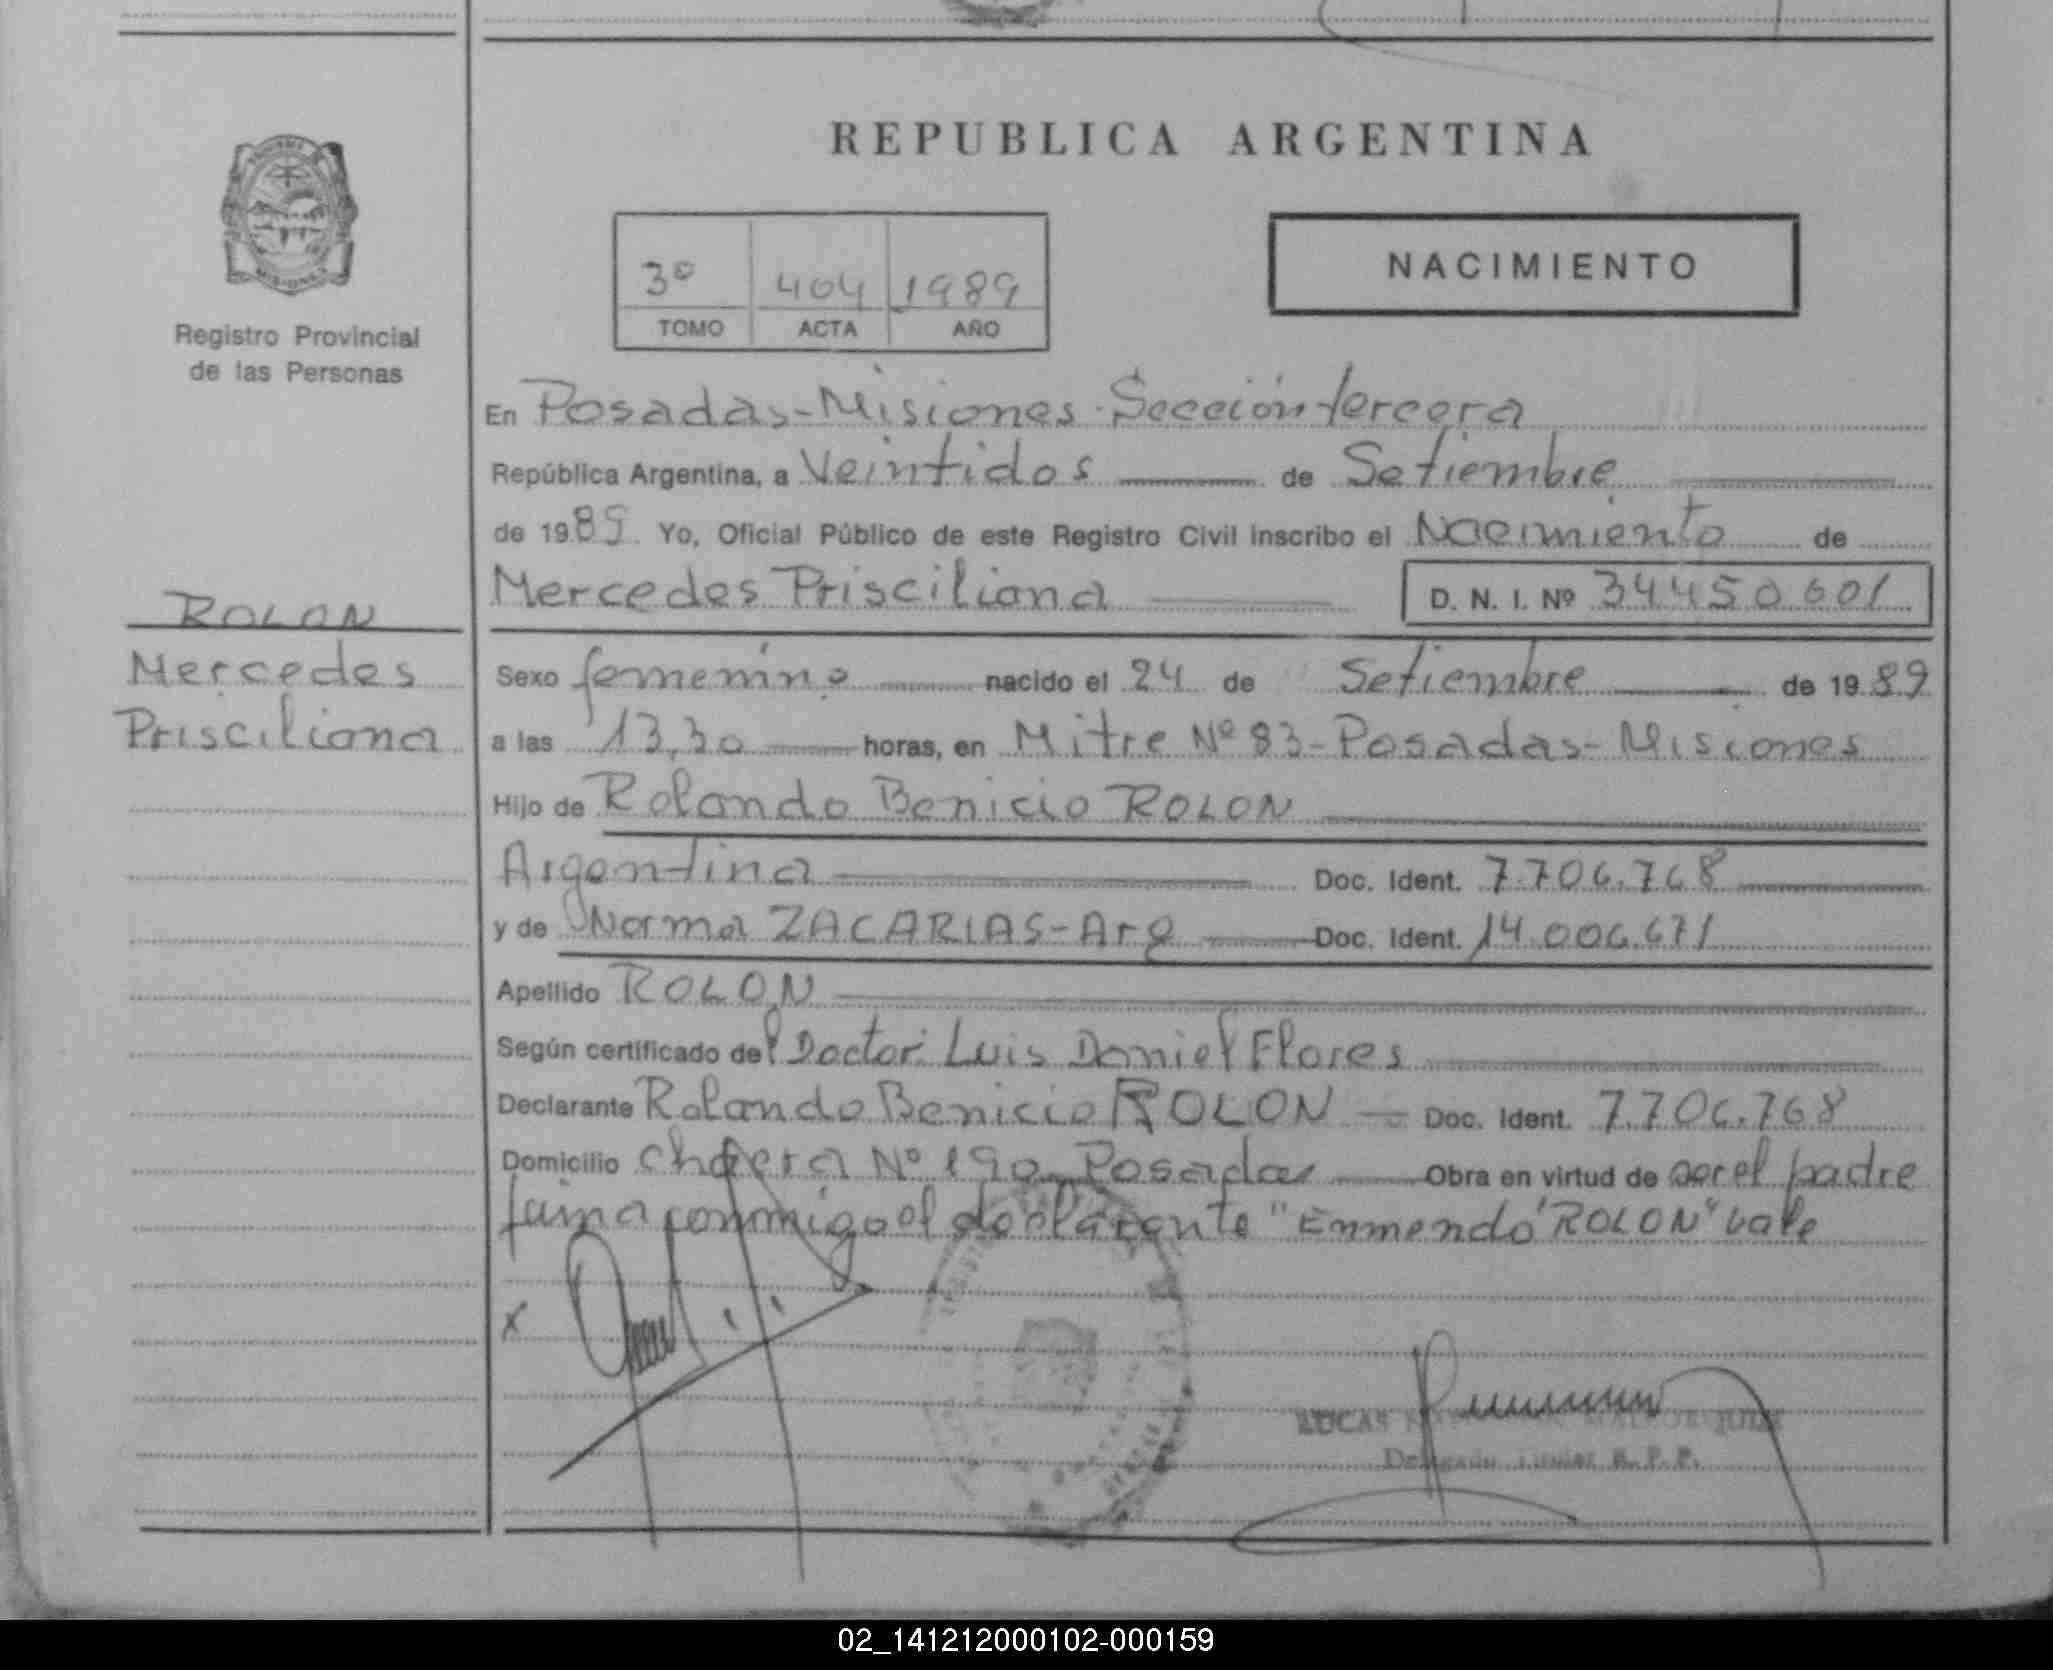 REPUBLICA ARGENTINA
NACIMIENTO
3º 404 1989
TOMO ACTA AÑO
Registro Provincial
de las Personas
En Posadas-Misiones-Sección tercera
República Argentina, a Veintidos de Setiembre
de 1989 Yo, Oficial Público de este Registro Civil inscribo el Nacimiento de
Mercedes Prisciliana D. N. I. Nº 34450601
ROLON
Mercedes
Prisciliana
Sexo femenino nacido el 24 de Setiembre de 1989
a las 13,30 horas, en Mitre Nº 83-Posadas-Misiones
Hijo de Rolando Benicio ROLON
Argentina Doc. Ident. 7.706.768
y de Norma ZACARIAS-Arg Doc. Ident. 14.006.671
Apellido ROLON
Según certificado del Doctor: Luis Daniel Flores
Declarante Rolando Benicio ROLON Doc. Ident. 7.706.768
Domicilio Chacra Nº 190 Posadas Obra en virtud de ser el padre
conmigo el declarante "Enmendó "ROLON" vale
x
LUCAS
Titular R. P. P.
02_141212000102-000159